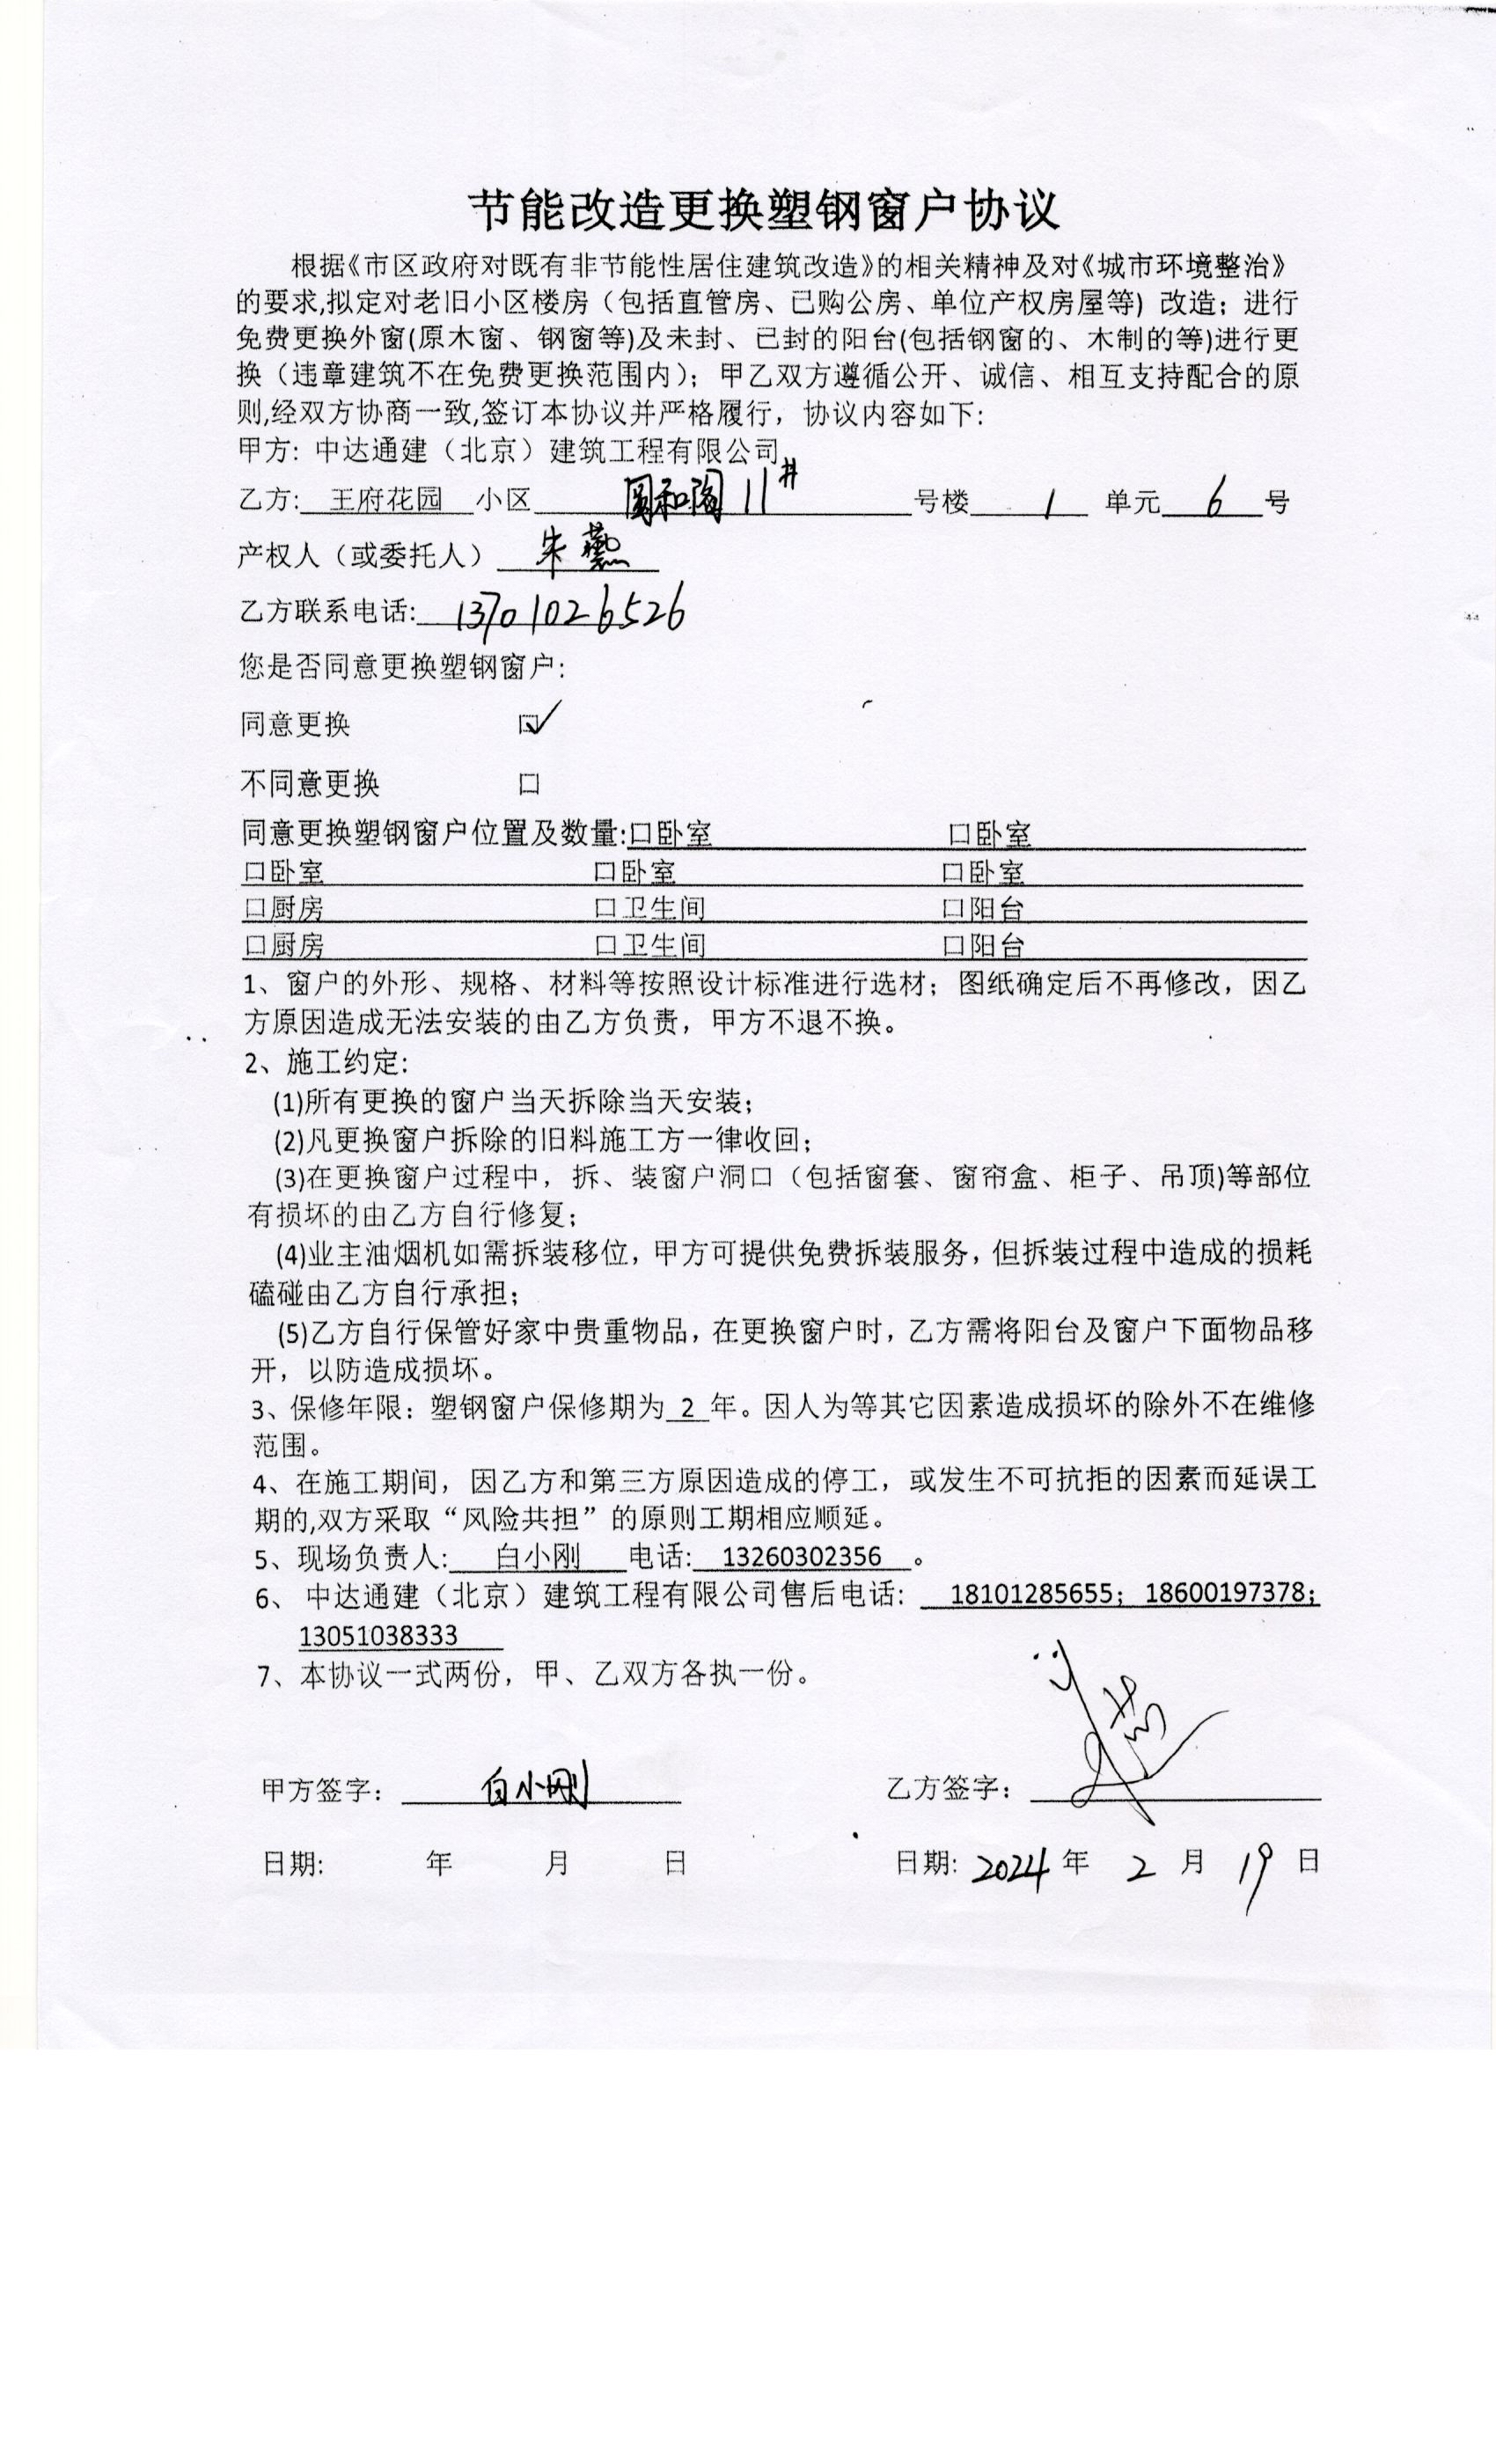 节能改造更换塑钢窗户协议
根据《市区政府对既有非节能性居住建筑改造》的相关精神及对《城市环境整治》
的要求,拟定对老旧小区楼房（包括直管房、已购公房、单位产权房屋等）改造；进行
免费更换外窗(原木窗、钢窗等)及未封、已封的阳台(包括钢窗的、木制的等)进行更
换（违章建筑不在免费更换范围内）；甲乙双方遵循公开、诚信、相互支持配合的原
则,经双方协商一致,签订本协议并严格履行，协议内容如下:
甲方: 中达通建（北京）建筑工程有限公司
乙方: 王府花园 小区 和阁11# 号楼 1 单元 6 号
产权人（或委托人） 朱
乙方联系电话: 13701026526
您是否同意更换塑钢窗户:
同意更换 ☑
不同意更换 口
同意更换塑钢窗户位置及数量:口卧室 口卧室
口卧室 口卧室 口卧室
口厨房 口卫生间 口阳台
口厨房 口卫生间 口阳台
1、窗户的外形、规格、材料等按照设计标准进行选材；图纸确定后不再修改，因乙
方原因造成无法安装的由乙方负责，甲方不退不换。
2、施工约定:
(1)所有更换的窗户当天拆除当天安装；
(2)凡更换窗户拆除的旧料施工方一律收回；
(3)在更换窗户过程中，拆、装窗户洞口（包括窗套、窗帘盒、柜子、吊顶)等部位
有损坏的由乙方自行修复；
(4)业主油烟机如需拆装移位，甲方可提供免费拆装服务，但拆装过程中造成的损耗
磕碰由乙方自行承担；
(5)乙方自行保管好家中贵重物品，在更换窗户时，乙方需将阳台及窗户下面物品移
开，以防造成损坏。
3、保修年限：塑钢窗户保修期为 2 年。因人为等其它因素造成损坏的除外不在维修
范围。
4、在施工期间，因乙方和第三方原因造成的停工，或发生不可抗拒的因素而延误工
期的,双方采取“风险共担”的原则工期相应顺延。
5、现场负责人: 白小刚 电话: 13260302356 。
6、 中达通建（北京）建筑工程有限公司售后电话: 18101285655；18600197378；
13051038333
7、本协议一式两份，甲、乙双方各执一份。
甲方签字： 白小刚 乙方签字：
日期: 年 月 日 日期: 2024 年 2 月 19 日